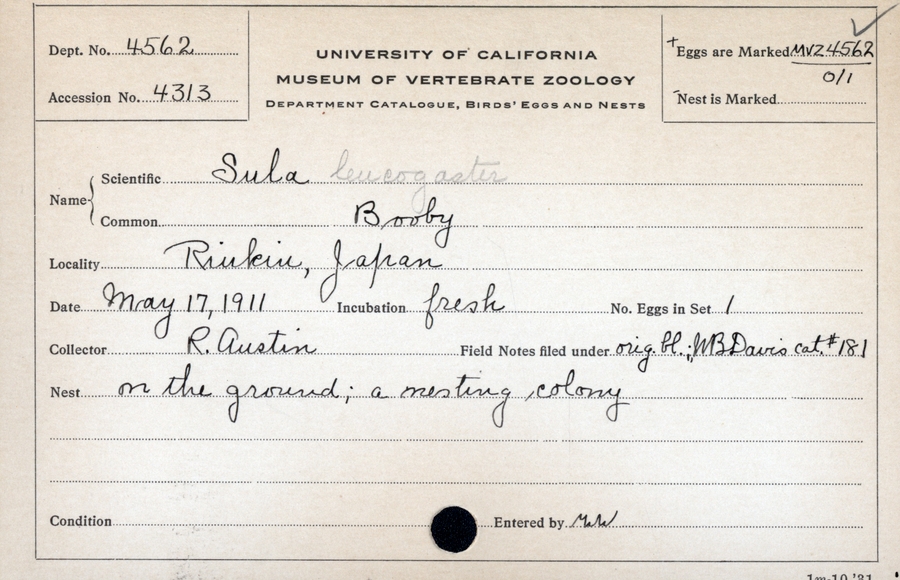 Dept. No. 4562
Accession No. 4313
UNIVERSITY OF CALIFORNIA
MUSEUM OF VERTEBRATE ZOOLOGY
DEPARTMENT CATALOGUE, BIRDS' EGGS AND NESTS
+Eggs are Marked MVZ4562
0/1
-Nest is Marked
Name
Scientific Sula leucogaster
Common Booby
Locality Riukiu, Japan
Date May 17, 1911 Incubation fresh No. Eggs in Set 1
Collector R. Austin Field Notes filed under orig. bl.; WBDavis cat. #181
Nest on the ground; a nesting colony
Condition Entered by
1m-10,'31